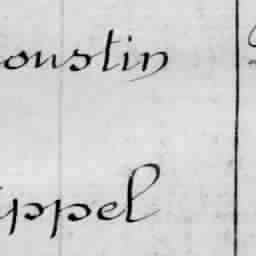 oustin
ippel